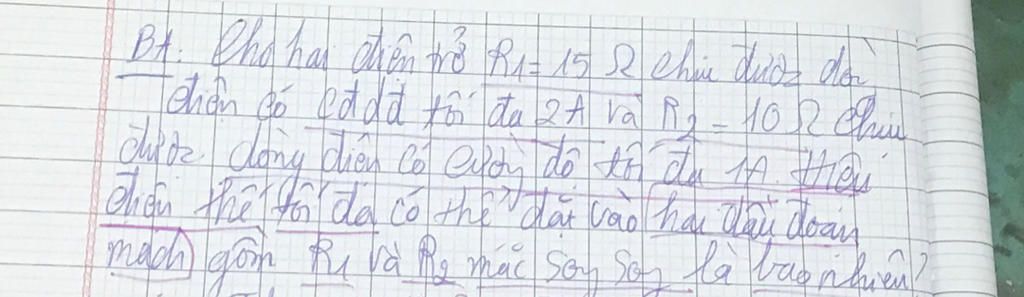 B1. Cho hai điện trở R1 = 15 Ω chịu được dòng
điện có cđdđ tối đa 2A và R2 = 10 Ω chịu
được dòng điện có cường độ tối đa 1A. Hiệu
điện thế tối đa có thể đặt vào hai đầu đoạn
mạch gồm R1 và R2 mắc song song là bao nhiêu?